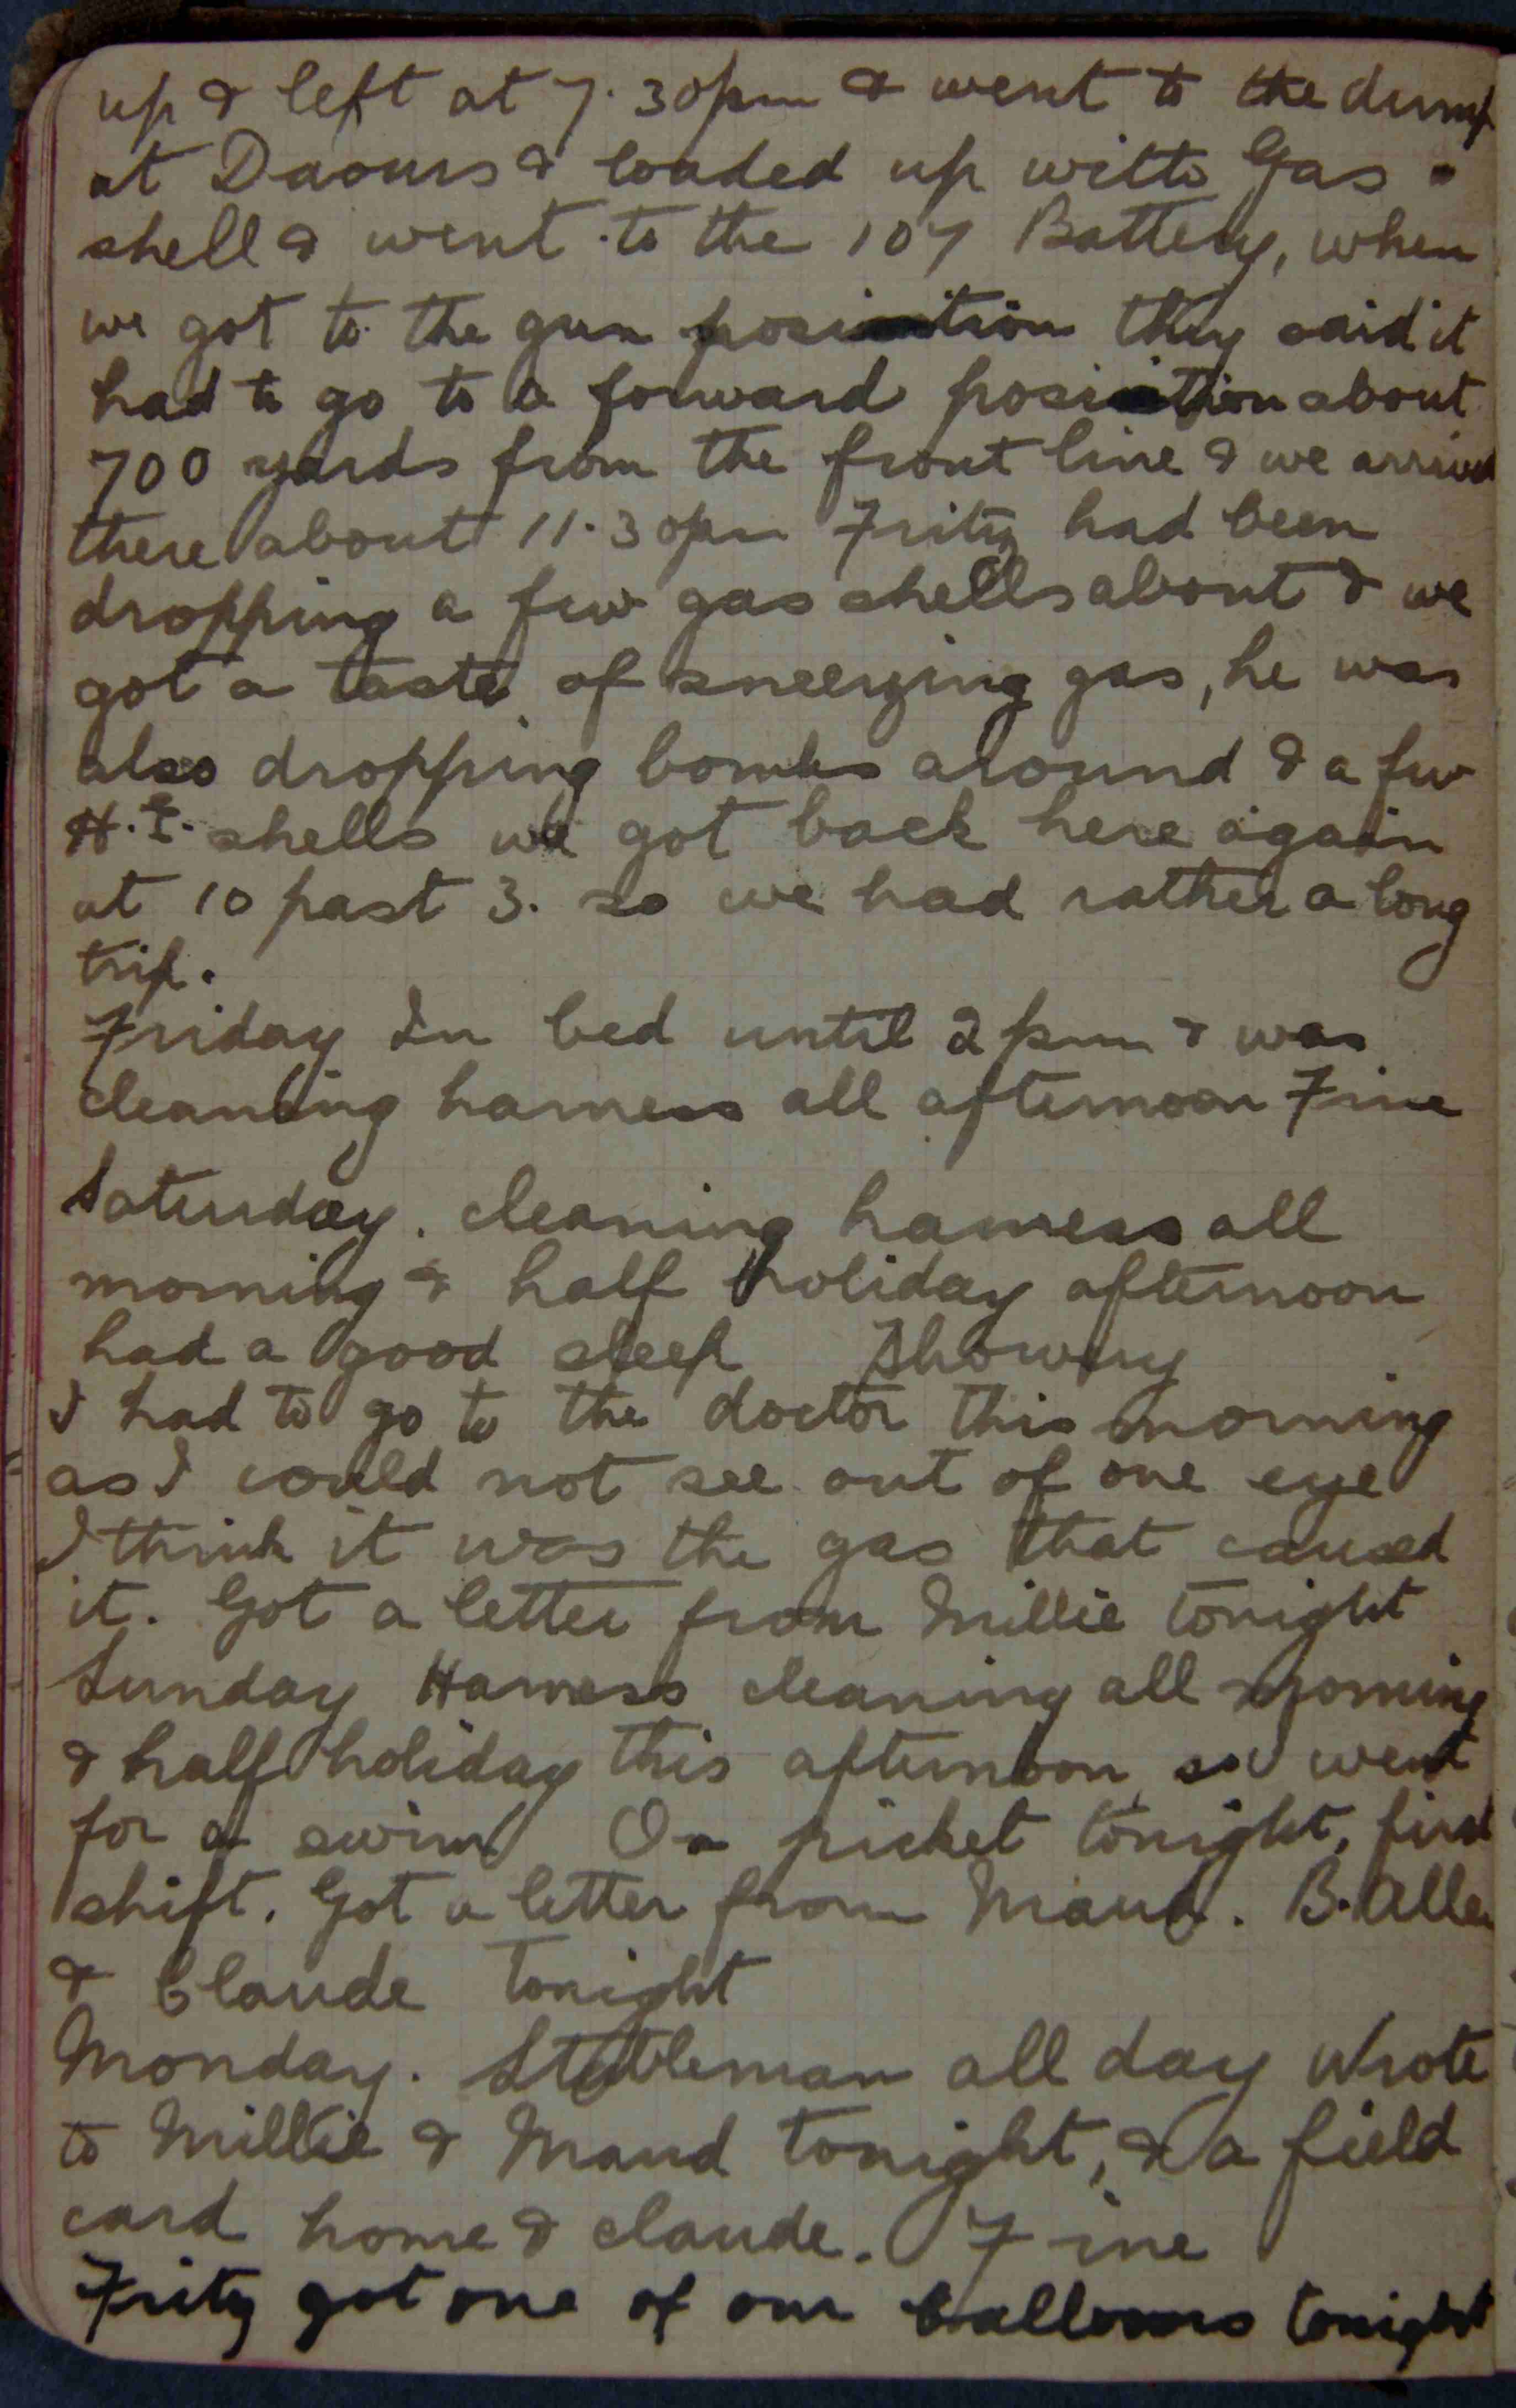 up & left at 7.30pm & went to the dump
at Daours & loaded up with Gas
shell & went to the 107 Battery, when
we got to the gun position they said it
had to go to a forward position about
700 yards from the front line & we arrived
there about 11.30pm Fritz had been
dropping a few gas shells about & we
got a taste of sneezing gas, he was
also dropping bombs around & a few
H.E. shells we got back here again
at 10 past 3. so we had rather a long
trip.
Friday In bed until 2 pm & was
cleaning harness all afternoon Fine
Saturday. cleaning harness all
morning & half holiday afternoon
had a good sleep Showery
I had to go to the doctor this morning
as I could not see out of one eye
I think it was the gas that caused
it. Got a letter from Millie tonight
Sunday Harness cleaning all morning
& half holiday this afternoon so went
for a swim On picket tonight, first
shift. Got a letter from Maud. B. Allen
& Claude tonight
Monday. Stableman all day Wrote
to Millie & Maud tonight, & a field
card home & Claude. Fine
Fritz got one of our balloons tonight